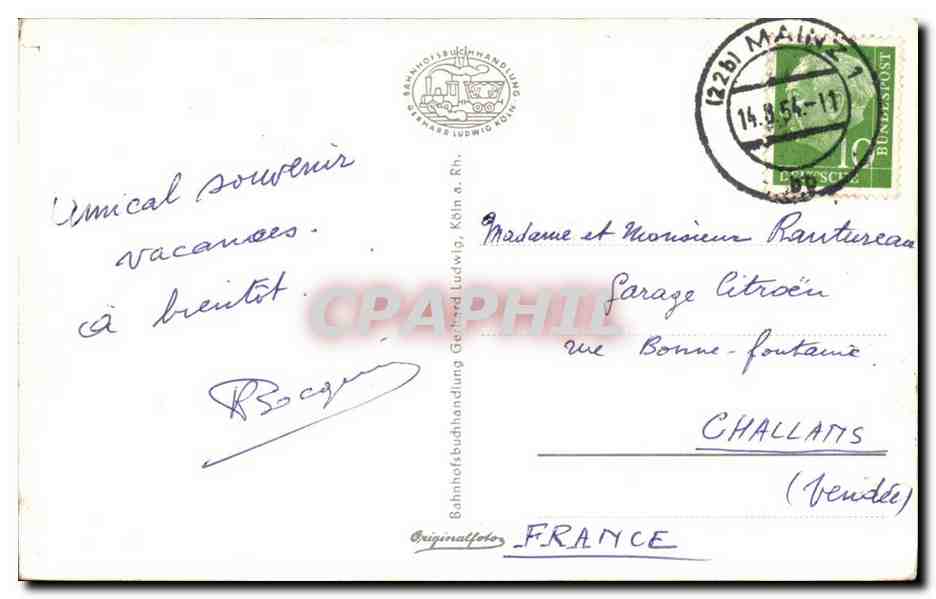 Amical souvenir
vacances.
à bientôt.
BAHNHOFSBUCHHANDLUNG
GERHARD LUDWIG KÖLN
Bahnhofsbuchhandlung Gerhard Ludwig, Köln a. Rh.
Originalfoto
(22b) MAINZ 1
14.8.54.-11
bp
10
DEUTSCHE
BUNDESPOST
Madame et Monsieur Rautureau
Garage Citroën
rue Bonne-fontaine.
CHALLANS
(Vendée)
FRANCE
CPAPHIL